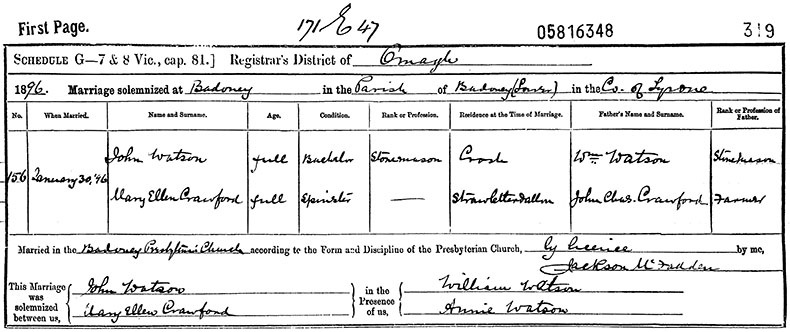 First Page.
171 E 47
05816348
319
SCHEDULE G—7 & 8 Vic., cap. 81.] Registrar's District of Omagh
1896. Marriage solemnized at Badoney in the Parish of Badoney (Lower) in the Co. of Tyrone
No. When Married. Name and Surname. Age. Condition. Rank or Profession. Residence at the Time of Marriage. Father's Name and Surname. Rank or Profession of Father.
John Watson full Bachelor Stonemason Crosh Wm Watson Stonemason
156 January 30, '96
Mary Ellen Crawford full Spinster — Strawletterdallon John Chas. Crawford Farmer
Married in the Badoney Presbyterian Church according to the Form and Discipline of the Presbyterian Church, by licence by me,
Jackson McFadden
This Marriage was solemnized between us, John Watson in the Presence of us, William Watson
Mary Ellen Crawford Annie Watson